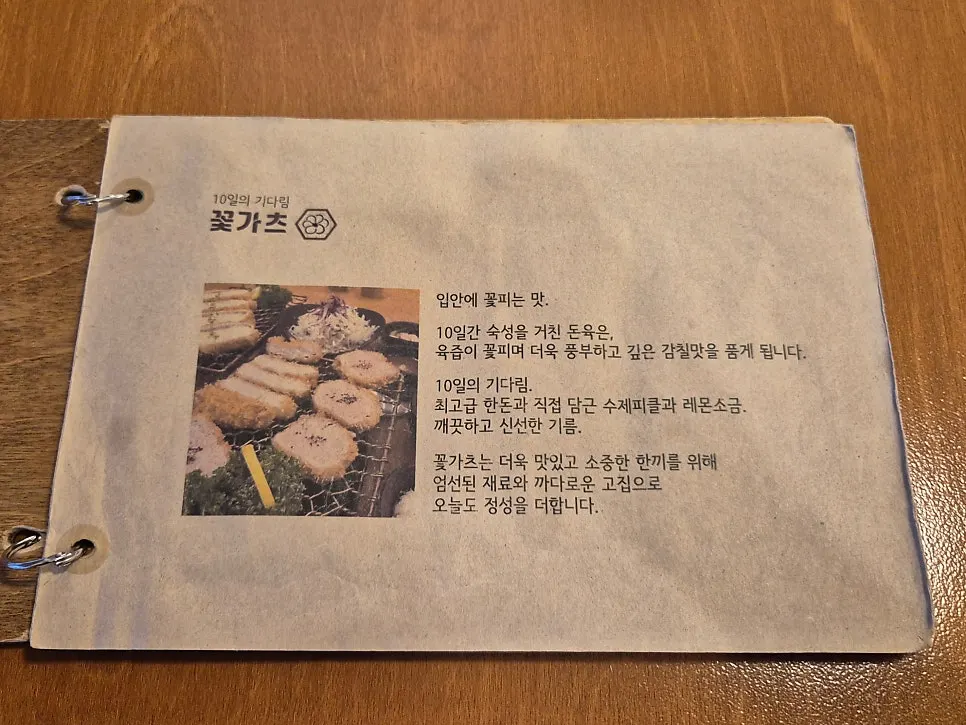 10일의 기다림
꽃가츠
입안에 꽃피는 맛.
10일간 숙성을 거친 돈육은,
육즙이 꽃피며 더욱 풍부하고 깊은 감칠맛을 품게 됩니다.
10일의 기다림.
최고급 한돈과 직접 담근 수제피클과 레몬소금.
깨끗하고 신선한 기름.
꽃가츠는 더욱 맛있고 소중한 한끼를 위해
엄선된 재료와 까다로운 고집으로
오늘도 정성을 더합니다.